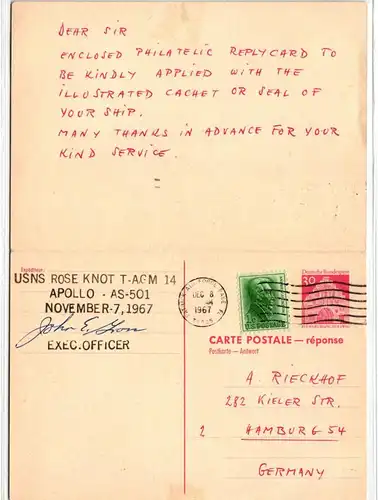 DEAR SIR
ENCLOSED PHILATELIC REPLYCARD TO
BE KINDLY APPLIED WITH THE
ILLUSTRATED CACHET OR SEAL OF
YOUR SHIP.
MANY THANKS IN ADVANCE FOR YOUR
KIND SERVICE.
USNS ROSE KNOT T-AGM 14
APOLLO - AS-501
NOVEMBER-7, 1967
EXEC. OFFICER
DEC 8
1967
U.S. POSTAGE
Deutsche Bundespost
30
CARTE POSTALE — réponse
Postkarte - Antwort
A. RIECKHOF
282 KIELER STR.
2 HAMBURG 54
GERMANY